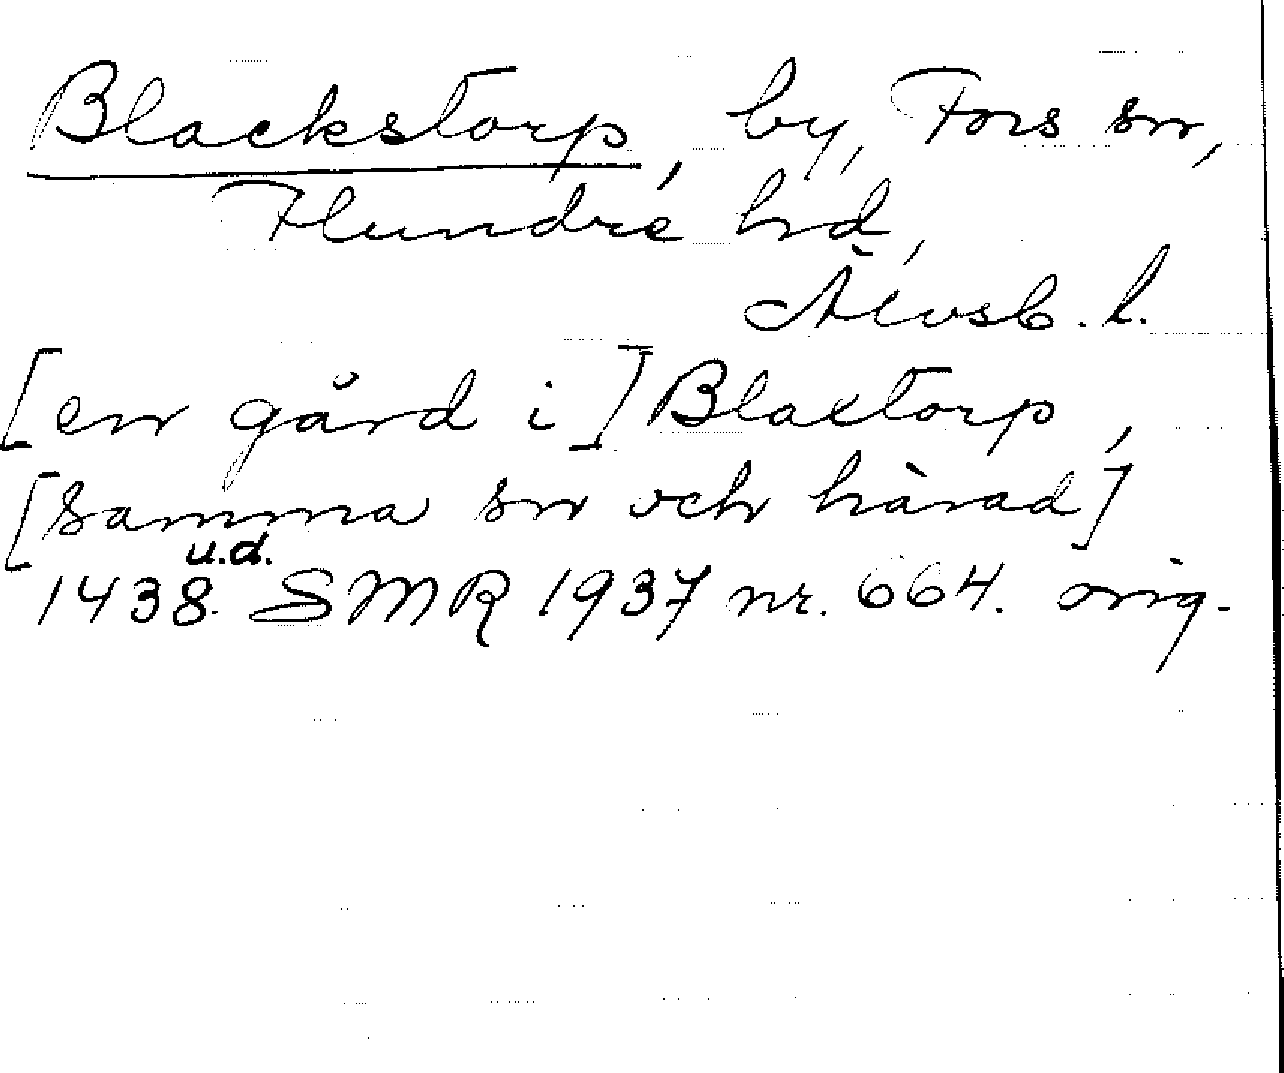 Blackstorp, by, Fors sn,
Flundre hd,
Älvsb. l.
[en gård i] Blaxtorp,
[samma sn och härad]
u.d.
1438. SMR 1937 nr. 664. orig.